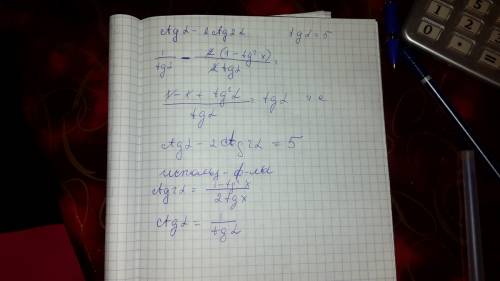 ctgα - 2ctg2α tgα = 5
1/tgα - 2(1-tg²x)/2tgα =
1-1+tg²α/tgα = tgα
ctgα - 2ctg2α = 5
использ-ф-лы
ctg2α = 1-tg²x/2tgx
ctgα = 1/tgα